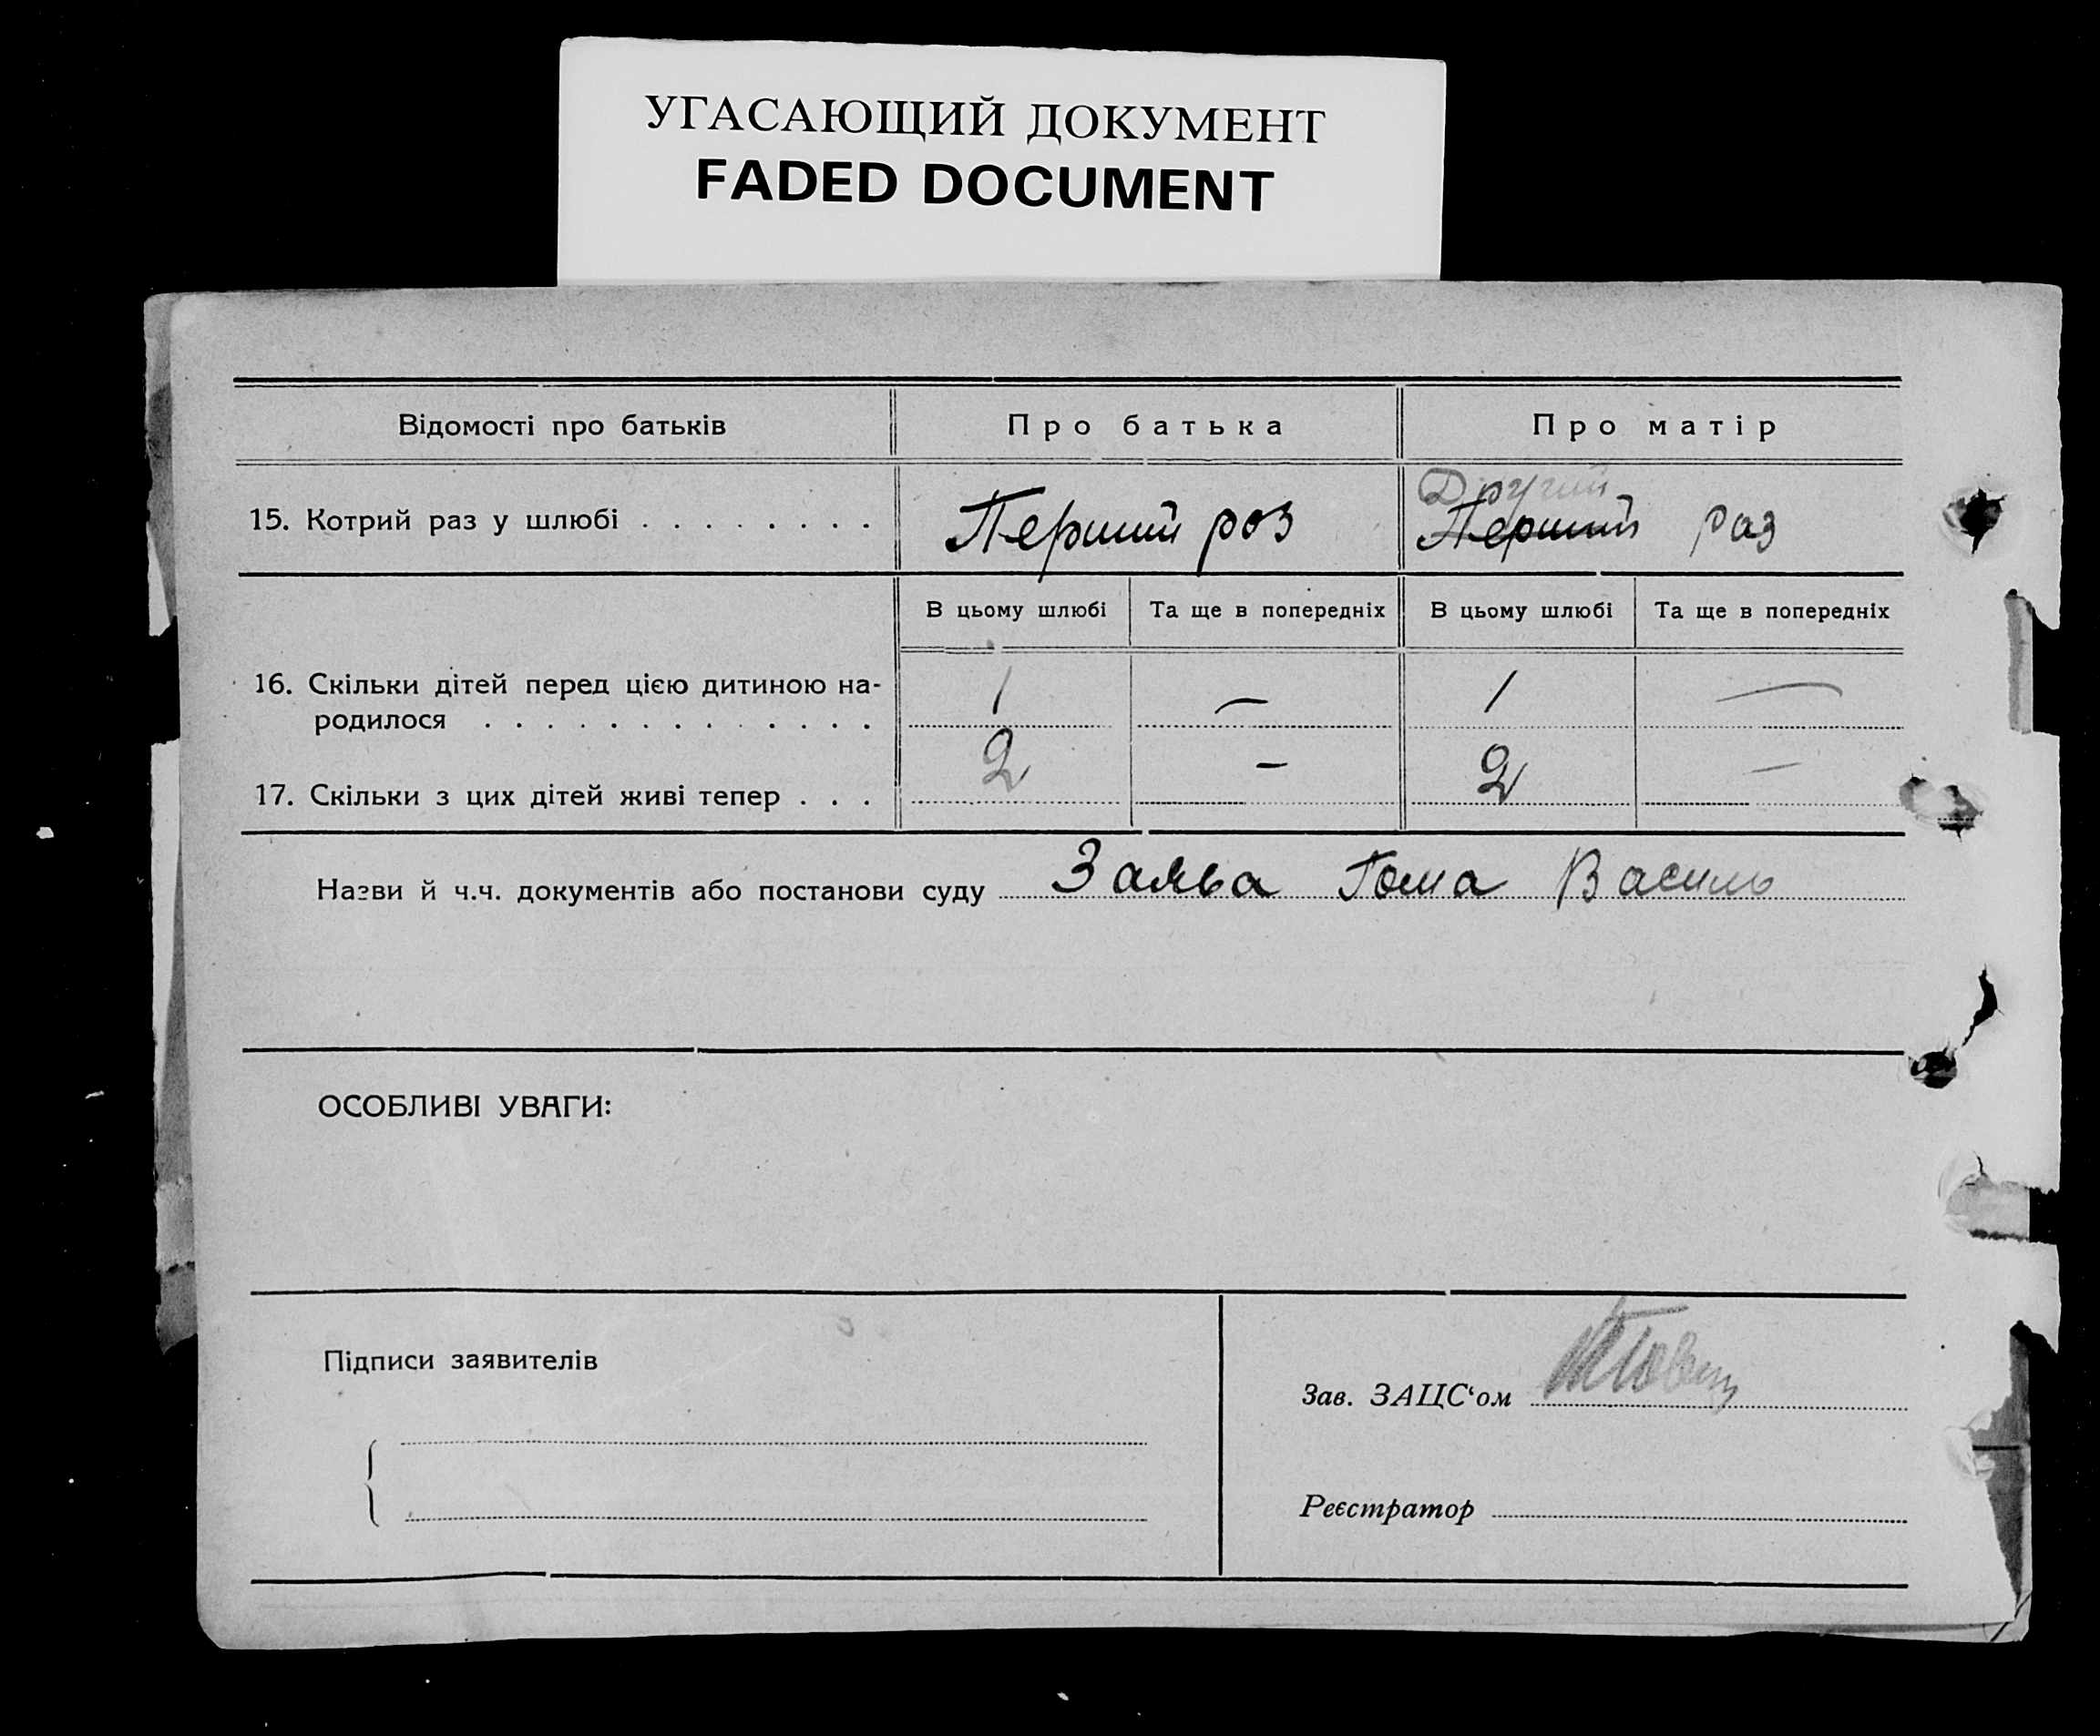 УГАСАЮЩИЙ ДОКУМЕНТ
FADED DOCUMENT
Відомості про батьків
Про батька
Про матір
15. Котрий раз у шлюбі . . . . . . . .
Перший роз
Другий
Перший раз
В цьому шлюбі
Та ще в попередніх
В цьому шлюбі
Та ще в попередніх
16. Скільки дітей перед цією дитиною на-
родилося . . . . . . . . . . . . .
1
—
1
—
17. Скільки з цих дітей живі тепер . . .
2
—
2
—
Назви й ч.ч. документів або постанови суду Заява Гома Василь
ОСОБЛИВІ УВАГИ:
Підписи заявителів
Зав. ЗАЦС‘ом
Реєстратор